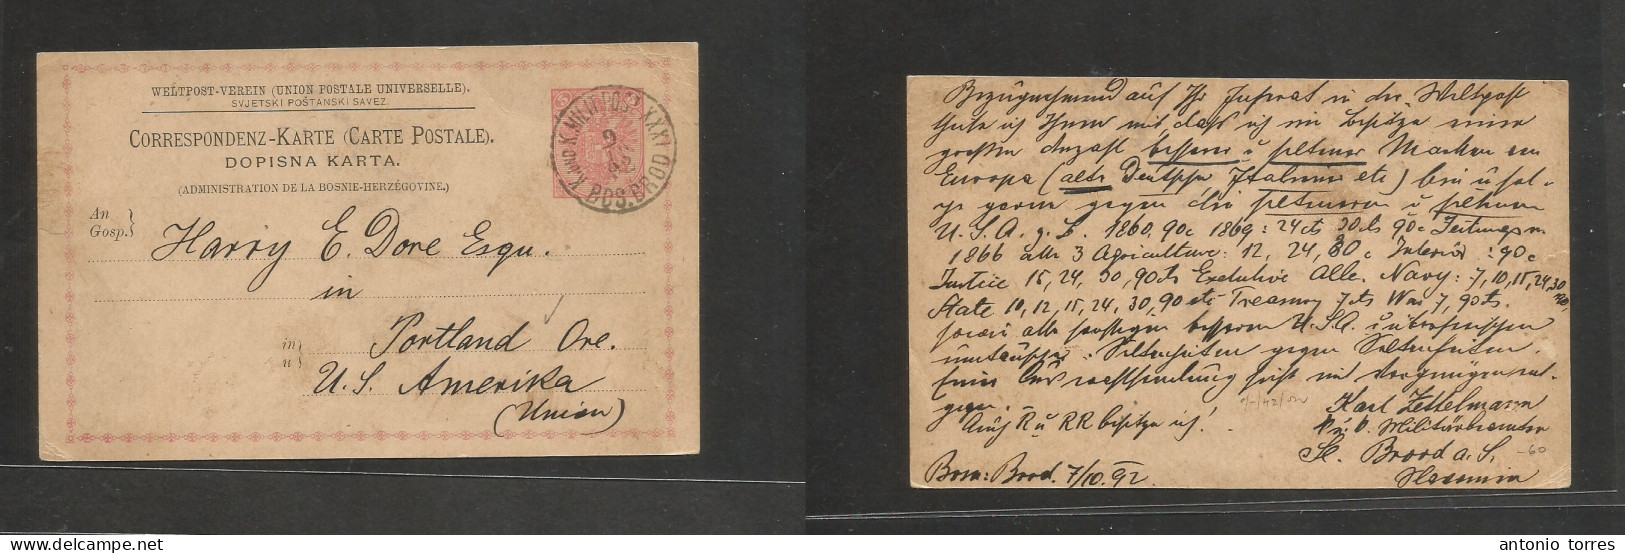 WELTPOST-VEREIN (UNION POSTALE UNIVERSELLE).
SVJETSKI POŠTANSKI SAVEZ.
CORRESPONDENZ-KARTE (CARTE POSTALE).
DOPISNA KARTA.
(ADMINISTRATION DE LA BOSNIE-HERZÉGOVINE.)
K. UND K. MILIT. POST XXXI
9
BOS. BROD
An
Gosp.
Harry E. Dore Esqu.
in
in
u
Portland Ore.
U. S. Amerika
(Union)
Bezugnehmend auf Ihr Inserat in die Weltpost
theile ich Ihnen mit, dass ich im Besitze einer
großen Anzahl besserer u seltener Marken von
Europa (alte Deutsche Italiener etc) bin u sol-
che gerne gegen die selteneren u seltenen
U. S. A. z. B. 1860, 90c 1869: 24cts 30cts 90c Zeitungsm.
1866 alle 3 Agriculture: 12, 24, 30 c Interior: 90c
Justice 15, 24, 30, 90cts Executive Alle. Navy: 7, 10, 15, 24, 30
State 10, 12, 15, 24, 30, 90 cts Treasury 7cts War 7, 90cts.
sowie alle sonstigen besseren U. S. A. u überseeischen
umtausche. Seltenheiten gegen Seltenheiten.
Ihrer sehe mit Vergnügen ent-
gegen.
Auch R u RR besitze ich!
Karl Zettelmann
k. u. k. Militärbeamter
Sl. Brood a. S.
Slavonien
Bosn: Brood. 7/10. 92.
-60
antonio torres